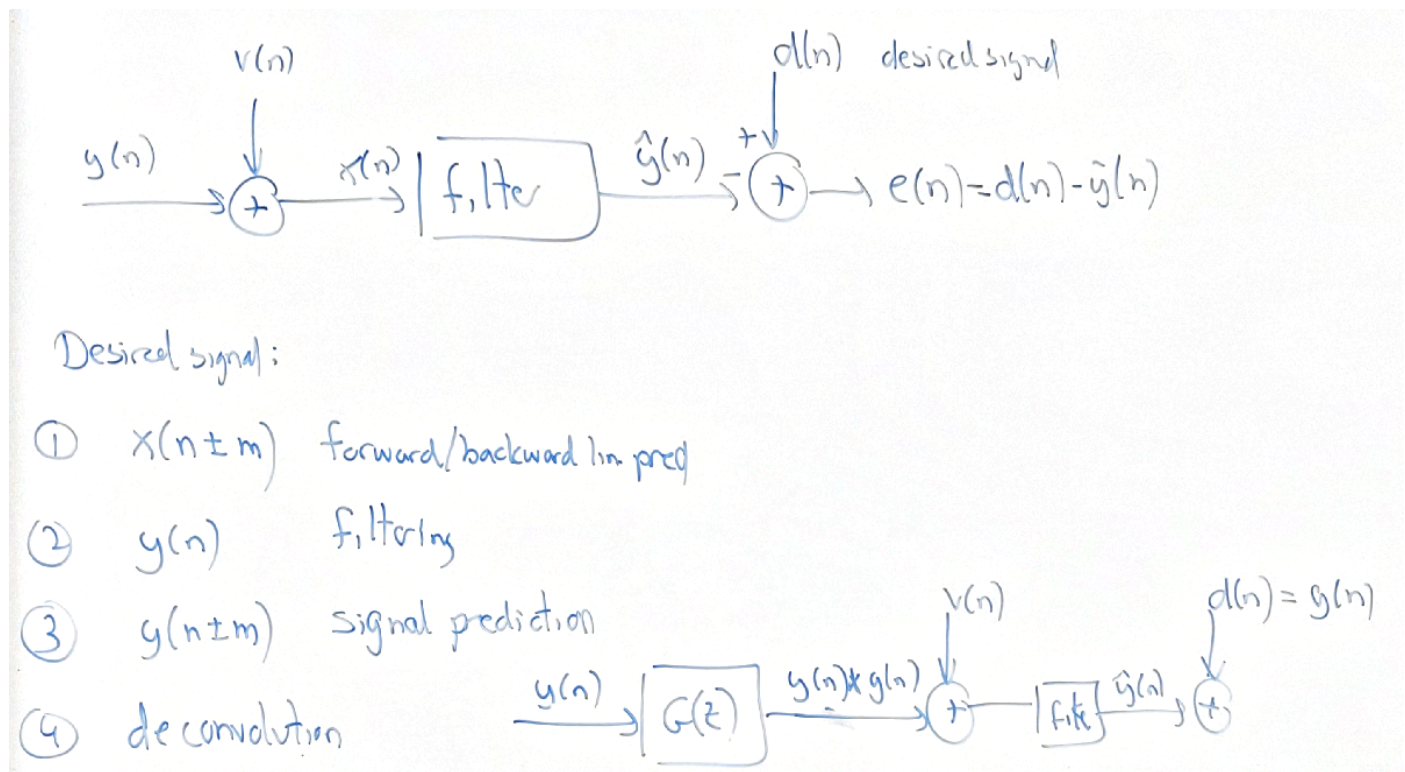 v(n) d(n) desired signal
y(n) x(n) filter ŷ(n) + - + e(n)=d(n)-ŷ(n)
+
Desired signal:
① x(n±m) forward/backward lin pred
② y(n) filtering
③ y(n±m) signal prediction
v(n) d(n)=y(n)
④ deconvolution y(n) G(z) y(n)*g(n) + ŷ(n) +